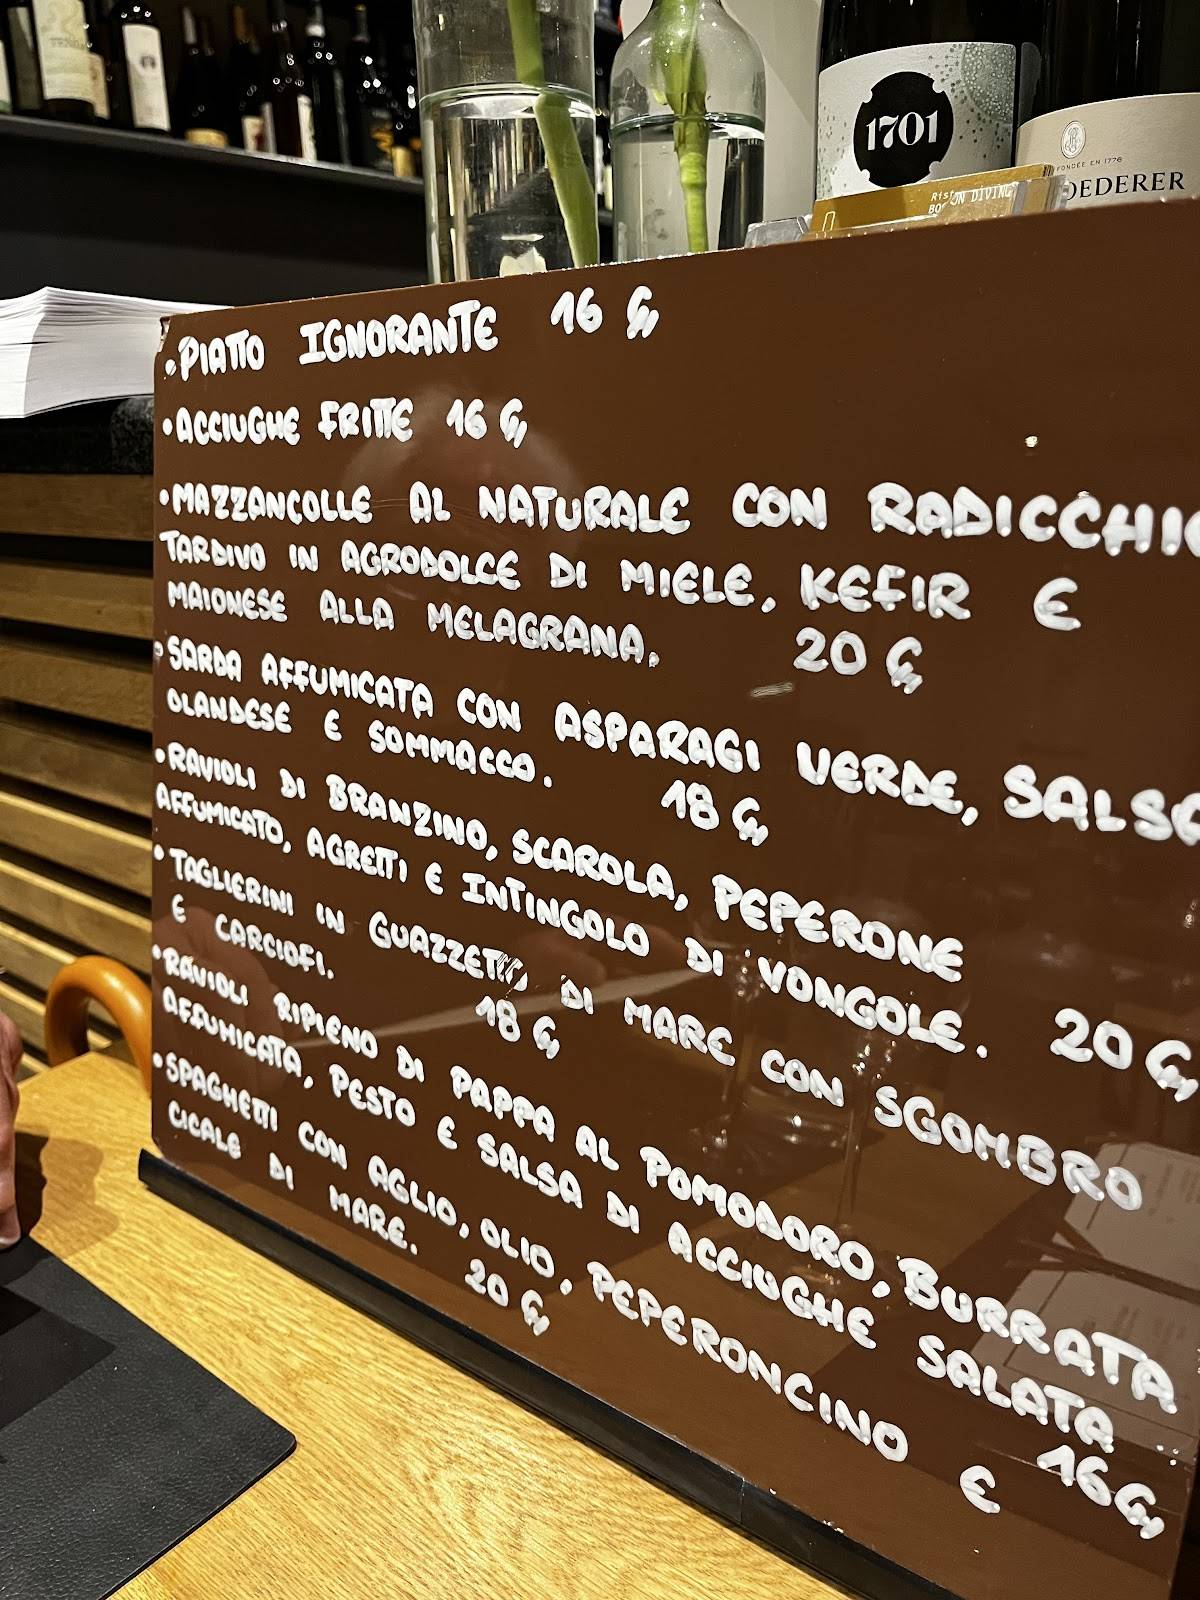 1701
FONDÉE EN 1776
OEDERER
• PIATTO IGNORANTE 16 €
• ACCIUGHE FRITTE 16 €
• MAZZANCOLLE AL NATURALE CON RADICCHIO
TARDIVO IN AGRODOLCE DI MIELE, KEFIR E
MAIONESE ALLA MELAGRANA. 20 €
• SARDA AFFUMICATA CON ASPARAGI VERDE, SALSA
OLANDESE E SOMMACCO. 18 €
• RAVIOLI DI BRANZINO, SCAROLA, PEPERONE
AFFUMICATO, AGRETTI E INTINGOLO DI VONGOLE. 20 €
• TAGLIERINI IN GUAZZETTO, DI MARE CON SGOMBRO
E CARCIOFI. 18 €
• RAVIOLI RIPIENO DI PAPPA AL POMODORO, BURRATA
AFFUMICATA, PESTO E SALSA DI ACCIUGHE SALATA 16 €
• SPAGHETTI CON AGLIO, OLIO, PEPERONCINO E
CICALE DI MARE. 20 €